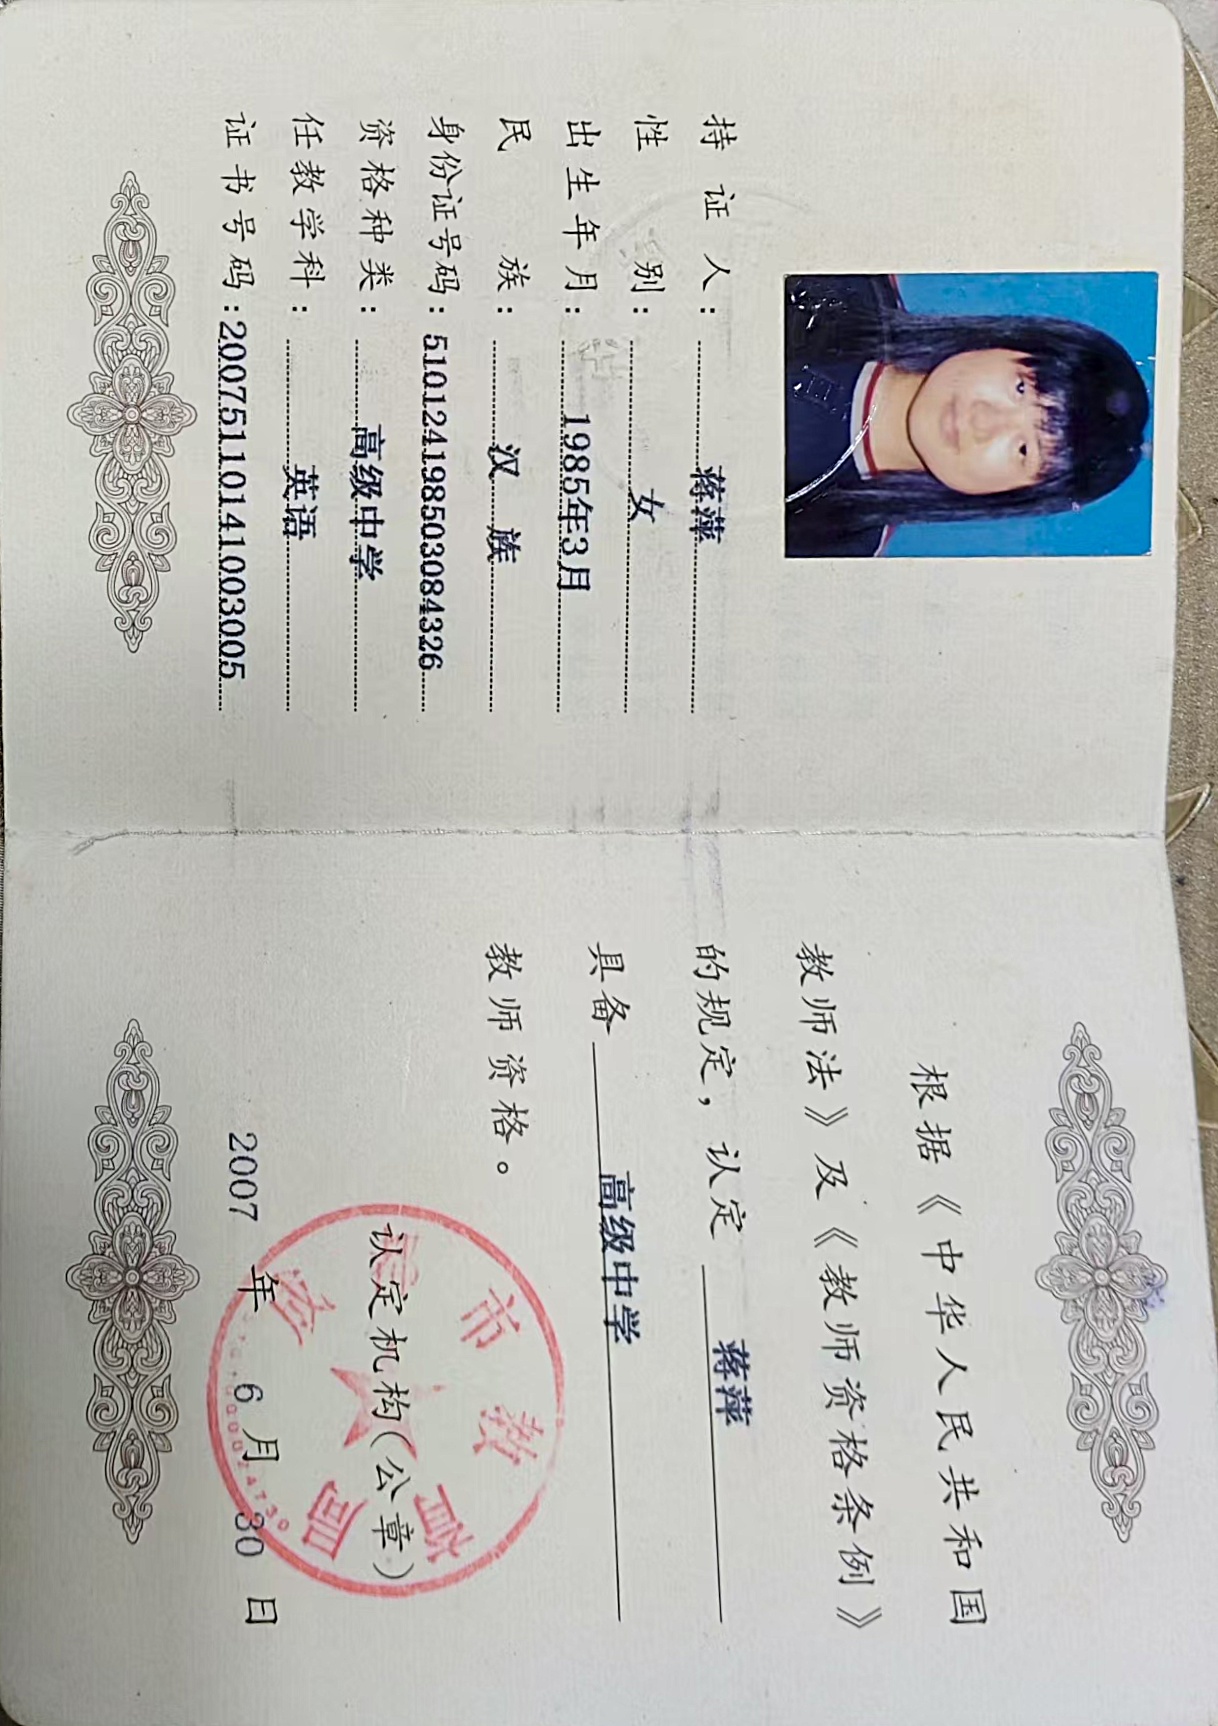 持证人：蒋萍
性别：女
出生年月：1985年3月
民族：汉族
身份证号码：510124198503084326
资格种类：高级中学
任教学科：英语
证书号码：20075110141003005
根据《中华人民共和国
教师法》及《教师资格条例》
的规定，认定 蒋萍
具备 高级中学
教师资格。
认定机构（公章）
市教育局
2007年6月30日